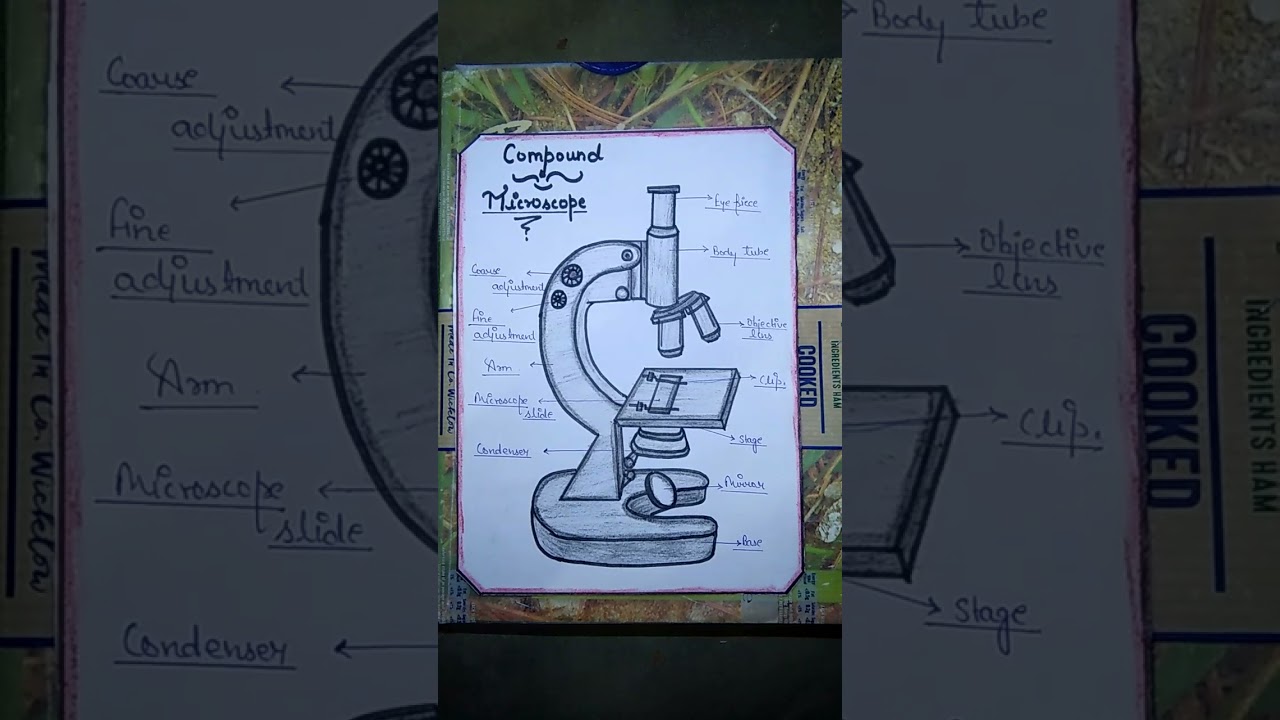 Compound
Microscope
Eye piece
Body tube
Coarse
adjustment
Fine
adjustment
Objective
lens
Arm
Clip.
Microscope
slide
Stage
Condenser
Mirror
Base
COOKED
Made in Co. Wicklow
Coarse
adjustment
Fine
adjustment
Arm
Microscope
slide
Condenser
Made in Co. Wicklow
Body tube
Objective
lens
Clip.
Stage
INGREDIENTS HAM
COOKED
INGREDIENTS HAM